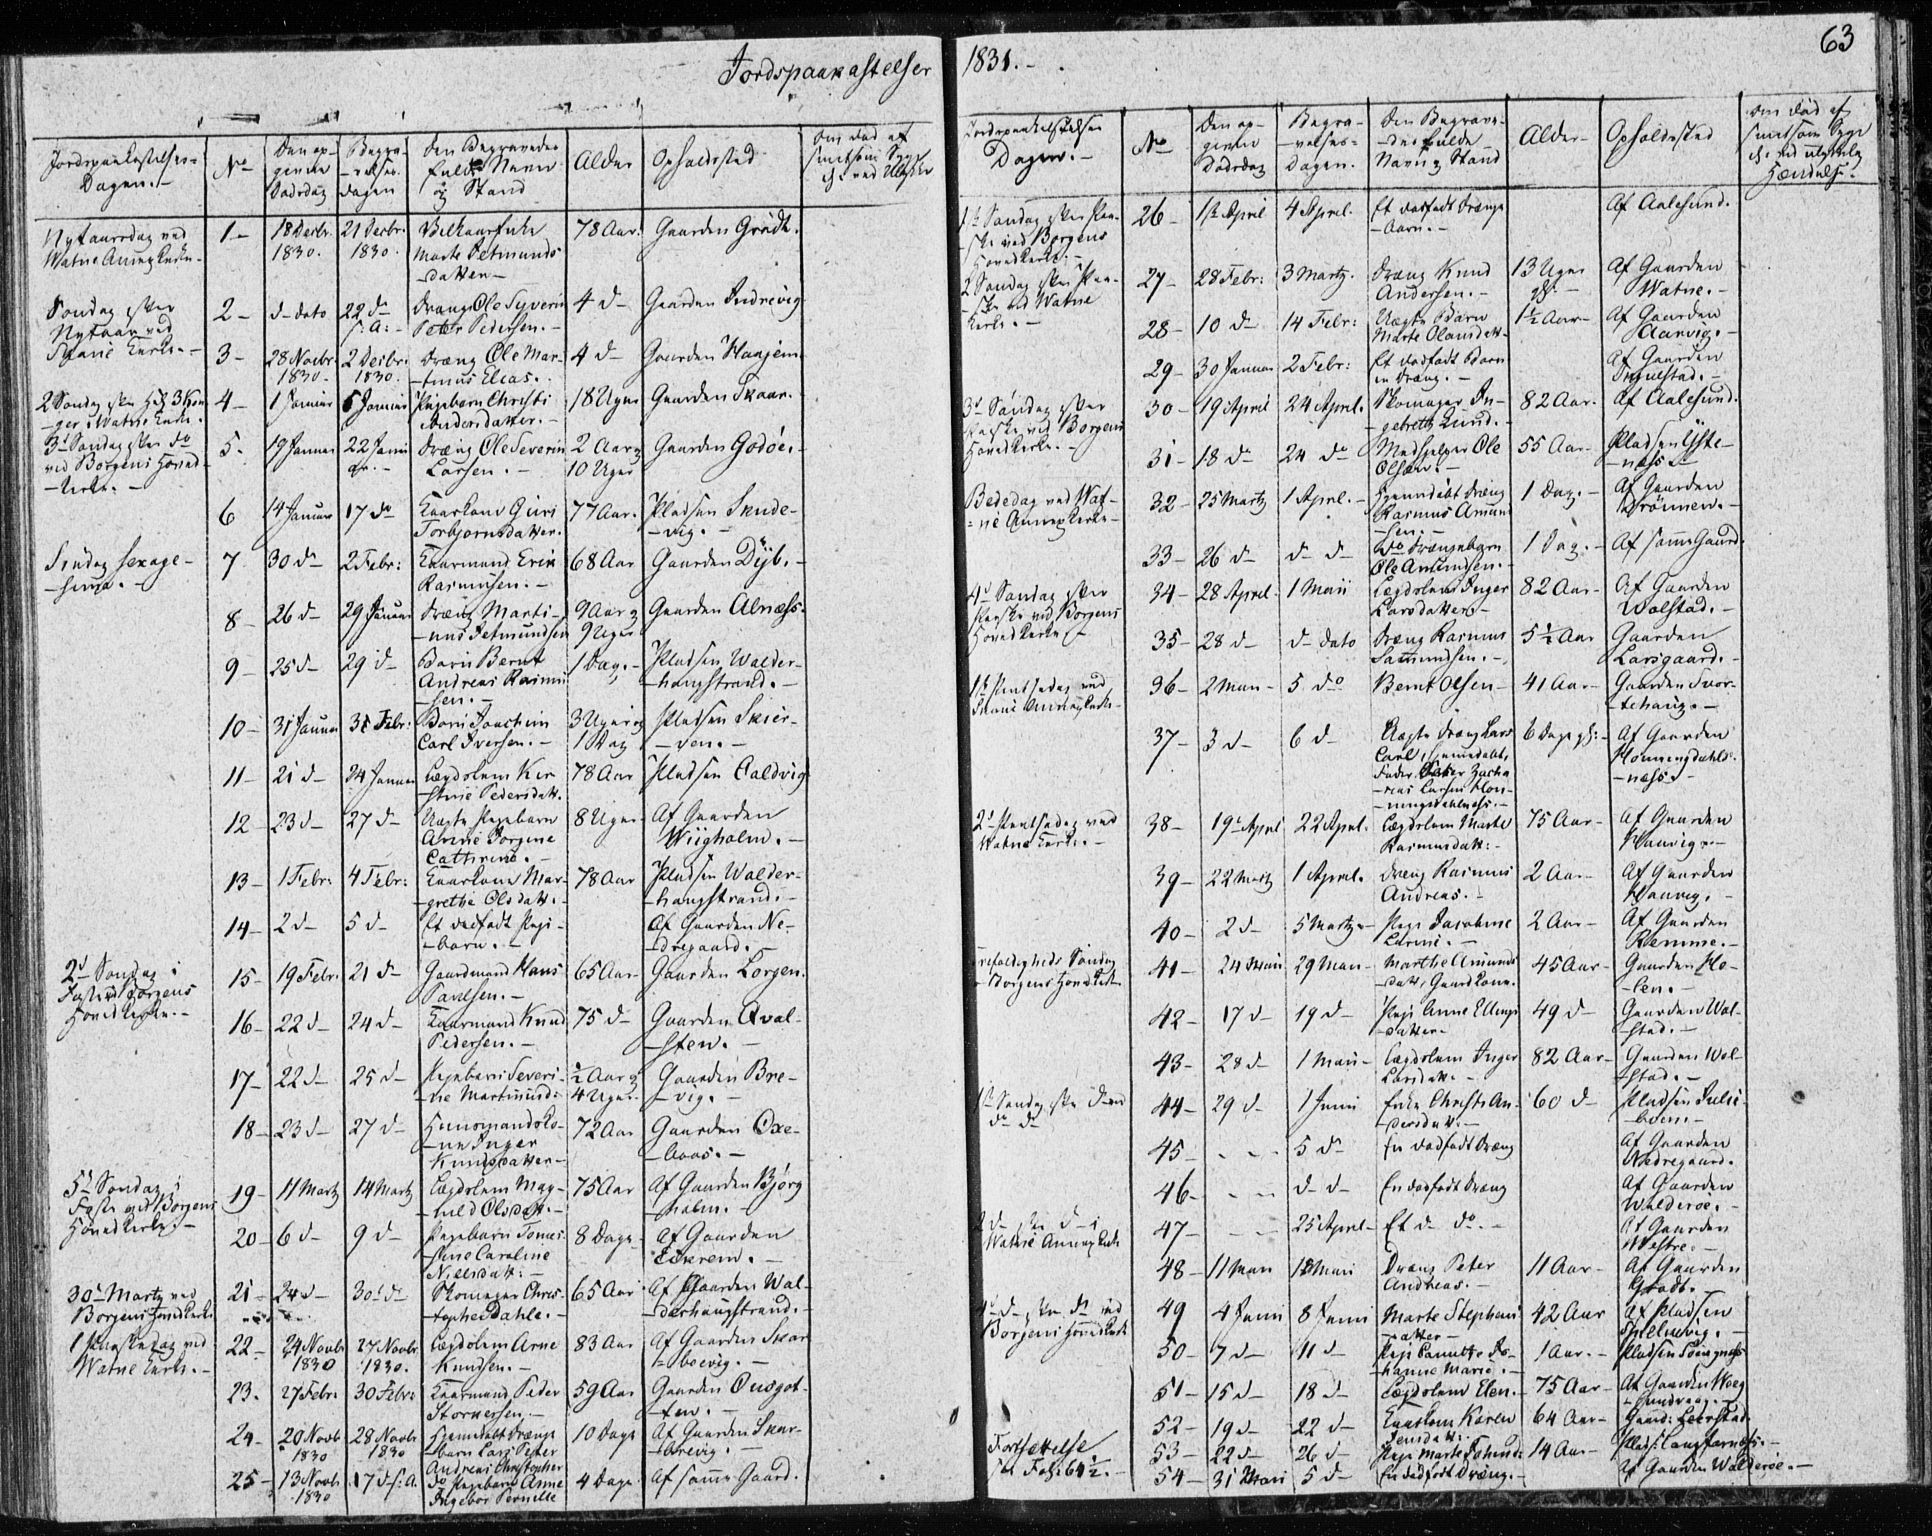 63
Jordspaakastelser 1831.-
Jordspaakastelses-
Dagen.-
No
Den op-
given
Dødsdag
Begra-
velses-
dagen
Den Begravedes
fulde Navn
og Stand
Alder
Opholdsted
Om død af
Nytaarsdag ved
Watne Annexkirke-
1- 18 Decbr. 1830. 21 Decbr. 1830.
Marte Petmunds
-datter-
78 Aar. Gaarden Grødt.
Søndag efter
Nytaar ved
2- d- dato 22 d-
Dreng Ole Syverin
Peter Pedersen.-
4 d- Gaarden Indrevig
3- 28 Novbr 1830. 2 Decbr. 1830.
Dreng Ole Mar-
-tinus Elias.
4 d- Gaarden Haajem
4- 1 Januar 6 Januar
Pigebarn Christi
Andersdatter.-
18 Uger Gaarden Skaar.
ved Borgens Hoved-
-kirke.-
5. 19 Januar 22 Janu
Dreng Ole Severin
Larsen.-
2 Aar og
10 Uger
Gaarden Godøe.
6 14 Januar 17 do
Kaarkone Guri
Torbjørnsdatter.
77 Aar. Pladsen Skude-
-vig.-
Søndag Sexage-
-sima.-
7 30 d- 2 Febr:
Kaarmand Erik
Rasmusen.-
68 Aar Gaarden Dyb.-
8- 26 d- 29 Januar
Dreng Marti-
-nus Petmundsen
9 Aar og
9 Uger
Gaarden Alnæss-
9- 25 d- 29 d-
Barn Bernt
Andreas Rasmu
-sen.-
1 Dag.- Pladsen Walder-
-haugstrand.-
10- 31 Januar 3 Febr:
Barn Joachim
Carl Iversen.-
3 Uger og
1 Dag
Pladsen Skier-
-ven.-
11- 21 d- 24 Januar
Lægdslem Kir
-stine Pedersdatt.
78 Aar Pladsen Caldvig
12- 23 d- 27 d-
Uægte Pigebarn
Anne Jorgine
Cathrine.-
8 Uger Af Gaarden
Wiigholm.-
13- 1 Febr: 4 Febr:
Kaarkone Mar-
-grethe Olsdatt.-
78 Aar Pladsen Walder-
-haugstrand.-
14- 2 d- 5 d-
Et dødfødt Pige-
-barn.-
Af Gaarden Ne-
-dregaard.-
2d Søndag i
Faste ved Borgens
Hovedkirke.-
15- 19 Febr. 21 d-
Gaardmand Hans
Paulsen.-
65 Aar Gaarden Lorgen.
16- 22 d- 24 d-
Kaarmand Knud
Pedersen.-
75 d- Gaarden Qval-
-steen.-
17- 22 d- 25 d-
Pigebarn Severi-
-ne Martinusd:
½ Aar og
4 Uger.
Gaarden Bre-
-vig.-
18- 23 d- 27 d-
Huusmandsko-
-ne Inger
Knudsdatter-
72 Aar Gaarden Oxe-
-baas.-
5te Søndag i
Faste ved Borgens
Hovedkirke.-
19- 11 Martz 14 Martz
Lægdslem Mag-
-hild Olsdatt.-
75 Aar Af Gaarden Bjørg
-holm.-
20- 6 d- 9 d-
Pigebarn Tomas-
-sine Caroline
Nielsdatt:-
8 Dage Af Gaarden
Eikrem.-
30te Martz ved
Borgens Hovedkirke
21- 24 d- 30 d-
Skomager Chris-
-topher Dahle.-
65 Aar Af Gaarden Wal-
-derhaugstrand.-
1 Paaskedag ved
Watne Kirke.-
22- 24 Novbr 1830 27 Novbr 1830.
Lægdslem Arne
Knudsen.-
83 Aar Af Gaarden Skor
-bevig.-
23. 27 Febr: 30 Febr:
Kaarmand Peder
Størkersen.-
59 Aar Gaarden Ousgot-
-ten.-
24- 20 Novbr 1830 28 Novbr 1830
Hjemdøbt Drenge
-barn Lars Petter
Andreas Christopher
10 Dage Af Gaarden Skar-
-brevig.-
25- 13 Novbr 1830 17 d- s: A.
Do Pigebarn Anne
Ingebor Pernille
4 Dage Af samme Gaard.
Jordspaakastelses
Dagen.-
No
Den op-
given
Dødsdag
Begra-
-velses-
Dagen.
Den Begrave-
-des fulde
Navn og Stand
Alder- Opholdssted
Om død af
smitsom Syge
el. ved ulykkelig
Hændelse.-
1te Søndag efter Paa-
-ske ved Borgens
Hovedkirke.-
26- 1te April 4 April.
Et dødfødt Drenge
-Barn.-
Af Aalesund.
2 Søndag efter Paa-
-ske ved Watne
Kirke.-
27- 28 Febr: 3 Martz.
Dreng Knud
Andersen.-
13 Uger
Af Gaarden
Watne.-
28- 10 d- 14 Febr:
Uægte Barn
Marte Olausdatt-
1½ Aar- Af Gaarden
Aarvig.-
29- 30 Januar 2 Febr:
Et dødfødt Barn
en Dreng.-
Af Gaarden
3d Søndag efter
Paaske ved Borgens
Hovedkirke.-
30- 19 April 24 April.
Skomager In-
-gebreth Lund.-
82 Aar. Af Aalesund.
31- 18 do 24 do
Medhjelper Ole
Olsen.-
55 Aar- Pladsen Yste-
-næss-
Bededag ved Wat-
=ne Annexkirke-
32- 25 Martz 1 April.-
Hjemdøbt Dreng
Rasmus Amund
-sen.-
1 Dag.- Af Gaarden
Drønnen.-
33- 26 d- d- d-
Do Drengebarn
Ole Amundsen.-
1 Dag.- Af samme Gaard.
4d Søndag efter
Paaske ved Borgens
Hovedkirke-
34- 28 April- 1 Maii
Lægdslem Inger
Larsdatter-
82 Aar- Af Gaarden
Wolstad.-
35- 28 d- d- dato
Dreng Rasmus
Salmundsen.-
5½ Aar Gaarden
Larsgaard.-
1te Pintsedag ved
36- 2 Maii- 5 do
Bernt Olsen-
41 Aar- Gaarden Svor-
-tehaug.-
37- 3 d- 6 d-
Uægte Dreng Lars
Carl, hjemmedøbt,
Fader Zacha
-rias Larsen Hon-
-ningdahlsnæss.-
6 Dage gl:- Af Gaarden
Honningdahls-
-næss-
2d Pintsedag ved
Watne Kirke.-
38- 19 April 22 April.
Lægdslem Marte
Rasmusdatt:-
75 Aar- Af Gaarden
Haavig.-
39- 22 Martz 1 April.
Dreng Rasmus
Andreas.-
2 Aar- Af Gaarden
Haavig.-
40- 2 d- 5 Martz-
Pige Jacobine
Larine.-
2 Aar- Af Gaarden
Remme.-
Trefoldigheds Søndag
i Borgens Hovedkirke
41- 24 Maii 29 Maii-
Marthe Amunds
-datt, Gaardkone.
45 Aar- Gaarden Ble-
-ken.-
42- 17 d- 19 d-
Pige Anne Ellings
-datter-
49 d- Gaarden Wol-
-stad.-
43- 28 d- 1 Maii-
Lægdslem Inger
Larsdatt.-
82 Aar- Gaarden Wol-
-stad.-
44- 29 d- 1 Junii
Enke Christi An-
-dersdatt.-
60 d- Pladsen Julie-
-boen.-
45- - - 5 d-
En dødfødt Dreng
Af Gaarden
Nedregaard.
46- - - d- d-
En dødfødt Dreng
Af Gaarden
Walderøe.-
Watne Annexkirke
47- - - 25 April-
Et d- do.-
Af Gaarden
Westre.-
48- 11 Maii 18 Maii
Dreng Peter
Andreas.-
11 Aar- Af Gaarden
Grødt.-
4d d- efter do ved
Borgens Hovedkirke
49 4 Junii 8 Junii
Marte Stephens
-datter-
42 Aar Af Pladsen
Spjelnevig.-
50- 7 d- 11 d-
-hanne Marie.-
1 Aar.-
51- 15 d- 18 d-
Lægdslem Elen-
75 Aar- Af Gaarden Weeg
52- 19 d- 22 d-
Kaarkone Karen
Jensdatt.
64 Aar- Gaard: Leerstad
Fortsættelse
see Folio 64½.-
53- 22 d- 26 d-
Pige Marte Johansd:
14 Aar- Plads: Langjærnæss.-
54- 31 Maii 5 d-
En dødfødt Dreng.-
Af Gaarden Walderøe.-